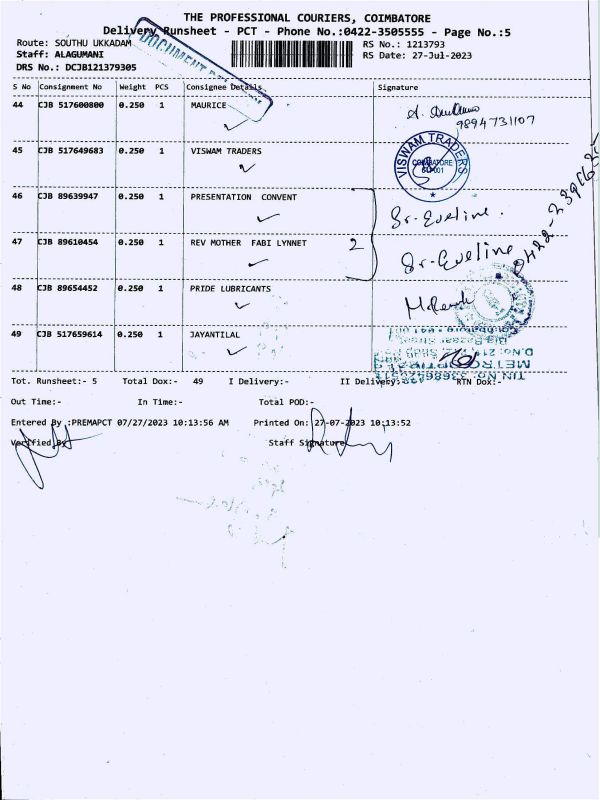 THE PROFESSIONAL COURIERS, COIMBATORE
Delivery Runsheet - PCT - Phone No.:0422-3505555 - Page No.:5
Route: SOUTHU UKKADAM RS No.: 1213793
Staff: ALAGUMANI RS Date: 27-Jul-2023
DRS No.: DCJB121379305
DOCUMENT
S No Consignment No Weight PCS Consignee Details Signature
44 CJB 517600800 0.250 1 MAURICE
9894731107
45 CJB 517649683 0.250 1 VISWAM TRADERS
VISWAM TRADERS
COIMBATORE
641 001
46 CJB 89639947 0.250 1 PRESENTATION CONVENT Sr. Eveline.
47 CJB 89610454 0.250 1 REV MOTHER FABI LYNNET 2 Sr. Eveline
48 CJB 89654452 0.250 1 PRIDE LUBRICANTS
49 CJB 517659614 0.250 1 JAYANTILAL
Tot. Runsheet:- 5 Total Dox:- 49 I Delivery:- II Delivery:- RTN Dox:-
Out Time:- In Time:- Total POD:-
Entered By :PREMAPCT 07/27/2023 10:13:56 AM Printed On: 27-07-2023 10:13:52
Verified By Staff Signature